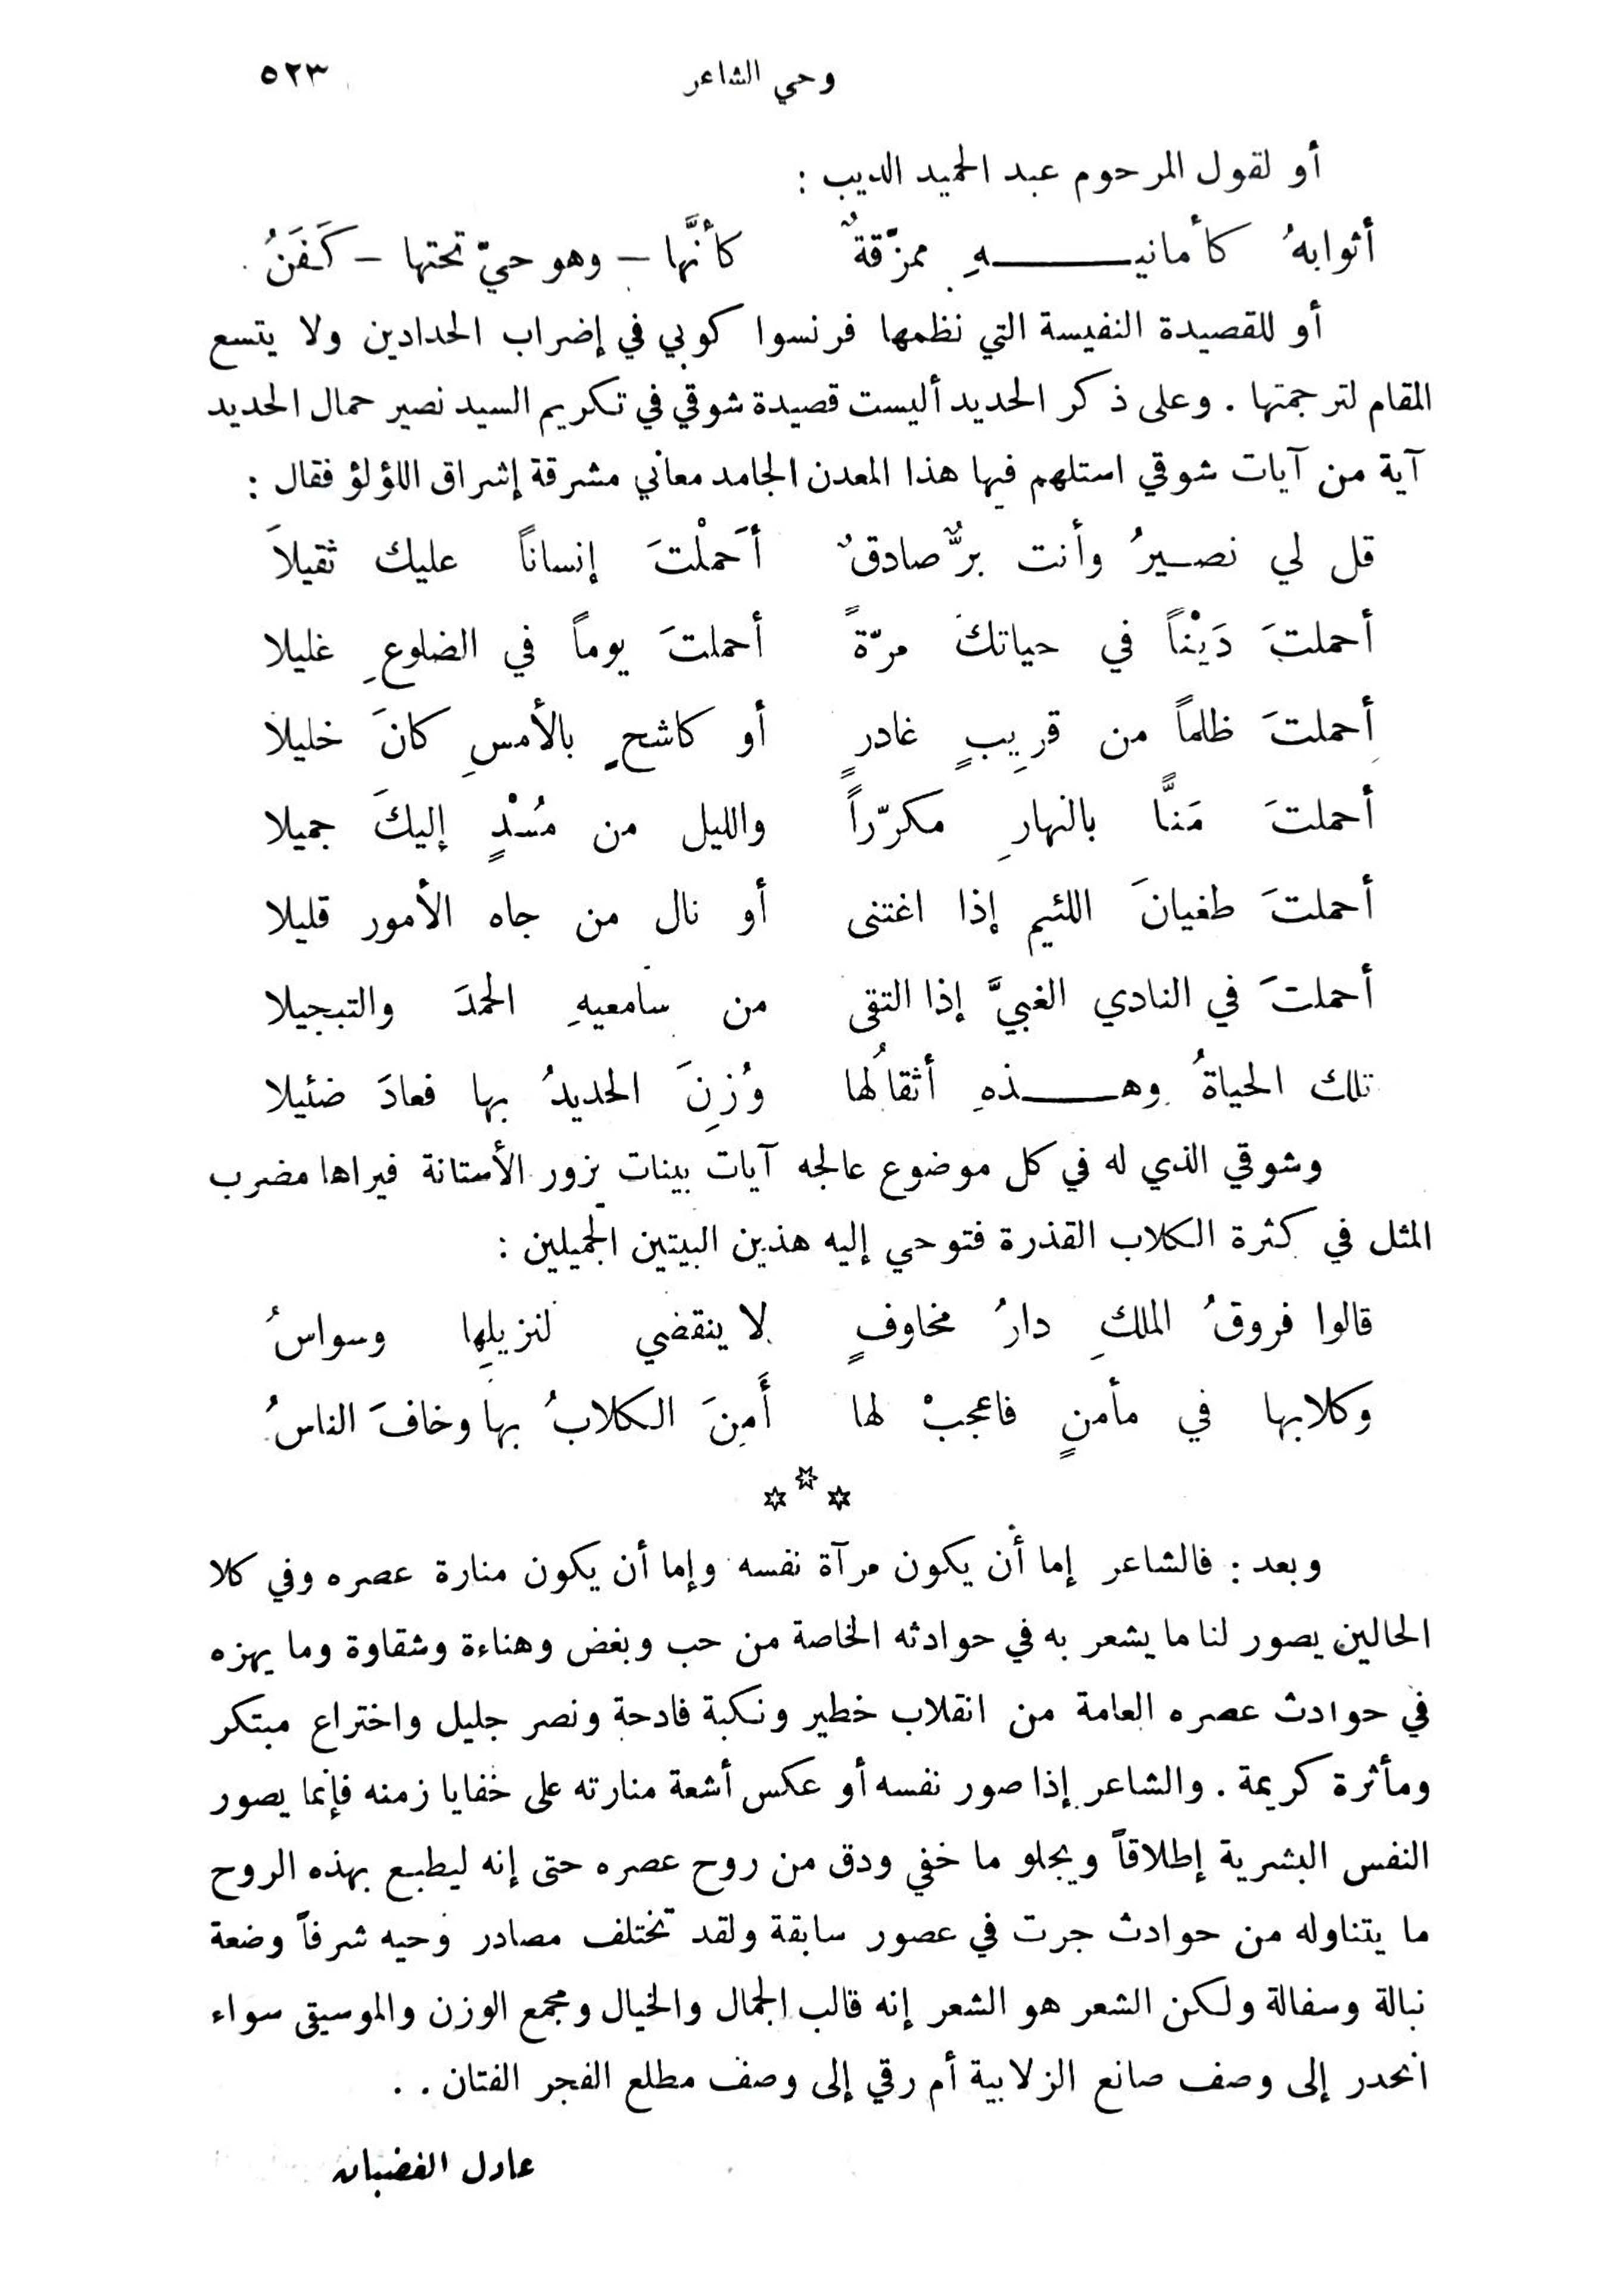 وحي الشاعر ٥٢٣
أو لقول المرحوم عبد الحميد الديب :
أثوابهُ كأمانيـــهِ ممزّقةٌ كأنَّها – وهو حيّ تحتها – كَفَنُ
أو للقصيدة النفيسة التي نظمها فرنسوا كوبي في إضراب الحدادين ولا يتسع
المقام لترجمتها . وعلى ذكر الحديد أليست قصيدة شوقي في تكريم السيد نصير حمال الحديد
آية من آيات شوقي استلهم فيها هذا المعدن الجامد معاني مشرقة إشراق اللؤلؤ فقال :
قل لي نصـيرُ وأنت برٌّ صادقٌ أحَملْتَ إنساناً عليك ثقيلاَ
أحملتَ دَيْناً في حياتكَ مرّةً أحملتَ يوماً في الضلوعِ غليلا
أحملتَ ظلماً من قريبٍ غادرٍ أو كاشحٍ بالأمسِ كانَ خليلا
أحملتَ مَنًّا بالنهارِ مكرّراً والليل من مُسْدٍ إليكَ جميلا
أحملتَ طغيانَ اللئيم إذا اغتنى أو نال من جاه الأمور قليلا
أحملتَ في النادي الغبيَّ إذا التقى من سامعيهِ الحمدَ والتبجيلا
تلك الحياةُ وهـــذهِ أثقالُها وُزِنَ الحديدُ بها فعادَ ضئيلا
وشوقي الذي له في كل موضوع عالجه آيات بينات يزور الأستانة فيراها مضرب
المثل في كثرة الكلاب القذرة فتوحي إليه هذين البيتين الجميلين :
قالوا فروقُ الملكِ دارُ مخاوفٍ لا ينقضي لنزيلِها وسواسُ
وكلابها في مأمنٍ فاعجبْ لها أَمِنَ الكلابُ بها وخافَ الناسُ
***
وبعد : فالشاعر إما أن يكون مرآة نفسه وإما أن يكون منارة عصره وفي كلا
الحالين يصور لنا ما يشعر به في حوادثه الخاصة من حب وبغض وهناءة وشقاوة وما يهزه
في حوادث عصره العامة من انقلاب خطير ونكبة فادحة ونصر جليل واختراع مبتكر
ومأثرة كريمة . والشاعر إذا صور نفسه أو عكس أشعة منارته على خفايا زمنه فإنما يصور
النفس البشرية إطلاقاً ويجلو ما خفي ودق من روح عصره حتى إنه ليطبع بهذه الروح
ما يتناوله من حوادث جرت في عصور سابقة ولقد تختلف مصادر وحيه شرفاً وضعة
نبالة وسفالة ولكن الشعر هو الشعر إنه قالب الجمال والخيال ومجمع الوزن والموسيقى سواء
انحدر إلى وصف صانع الزلابية أم رقي إلى وصف مطلع الفجر الفتان . .
عادل الغضبان